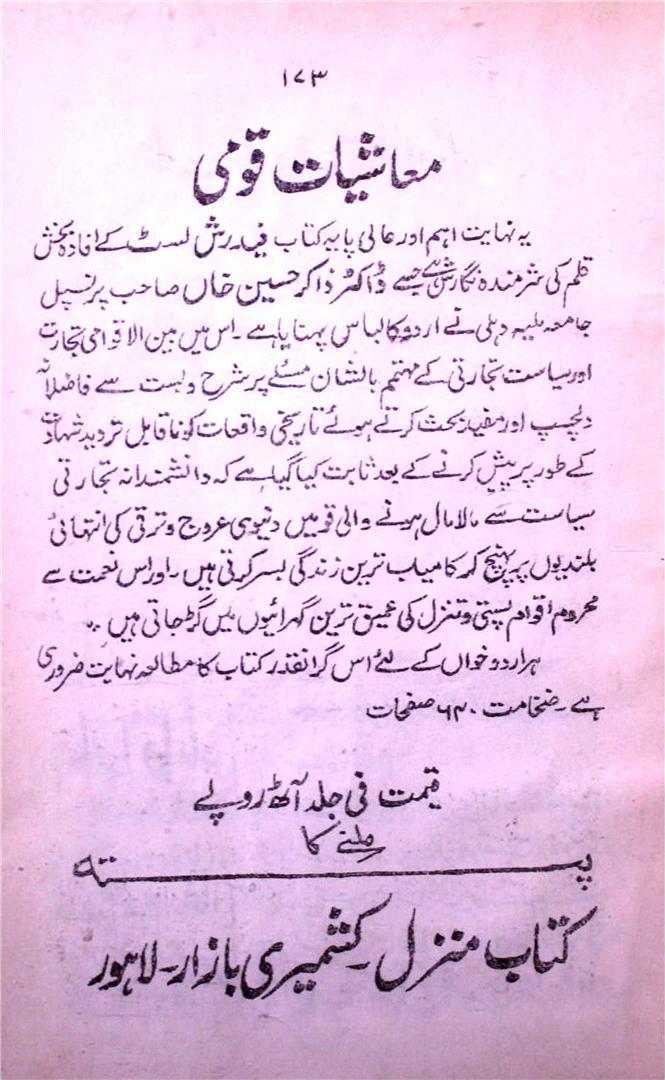 ۱۷۳
معاشیات قومی
یہ نہایت اہم اور عالی پایہ کتاب فریڈرش لسٹ کے افادہ بخش
قلم کی شرمندہ نگارش ہے جسے ڈاکٹر ذاکر حسین خاں صاحب پرنسپل
جامعہ ملیہ دہلی نے اردو کا لباس پہنایا ہے۔ اس میں بین الاقوامی تجارت
اور سیاست تجارتی کے مہتم بالشان مسئلے پر شرح و بسط سے فاضلانہ
دلچسپ اور مفید بحث کرتے ہوئے تاریخی واقعات کو ناقابل تردید شہادت
کے طور پر پیش کرنے کے بعد ثابت کیا گیا ہے کہ دانشمندانہ تجارتی
سیاست سے مالا مال ہونے والی قومیں دنیوی عروج و ترقی کی انتہائی
بلندیوں پر پہنچ کر کامیاب ترین زندگی بسر کرتی ہیں۔ اور اس نعمت سے
محروم اقوام پستی و تنزل کی عمیق ترین گہرائیوں میں گر جاتی ہیں ۔
ہر اردو خواں کے لئے اس گرانقدر کتاب کا مطالعہ نہایت ضروری
ہے۔ ضخامت ۶۴۰ صفحات
قیمت فی جلد آٹھ روپے
ملنے کا
پتہ
کتاب منزل۔ کشمیری بازار۔ لاہور